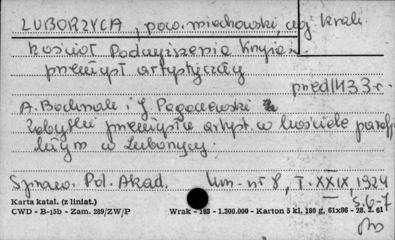 LUBORZYCA, pow. miechowski, woj. krak.
Kościół Podwyższenia Krzyża
przemysł artystyczny
przed 1433 r.
A. Bochnak i J. Pagaczewski
Zabytki przemysłu artyst. w kościele parafjalnym w Luborzycy.
Spraw. Pol. Akad. Um. nr 8, T. XXIX, 1924
s. 6-7
Karta katal. (z liniat.)
CWD - B-13b - Zam. 289/ZW/P
Wrak - 183 - 1.200.000 - Karton 5 kl. 180 g, 61x86 - 28. 2. 61